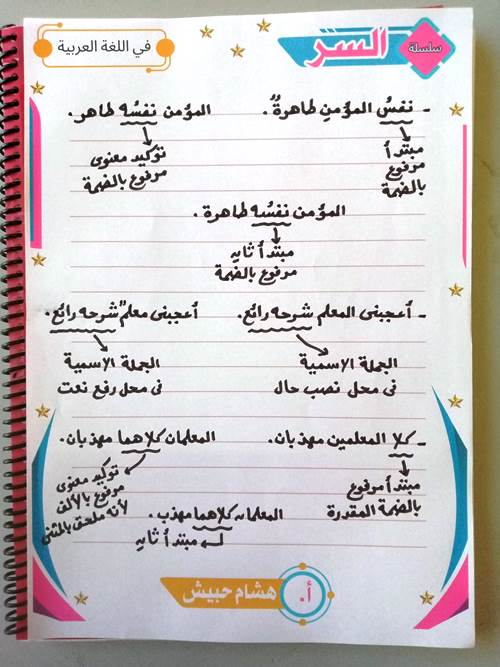 سلسلة السر في اللغة العربية
- نفسُ المؤمنِ طاهرةٌ. المؤمن نفسُه طاهر.
مبتدأ مرفوع بالضمة
توكيد معنوى مرفوع بالضمة
المؤمن نفسُه طاهرة.
مبتدأ ثانٍ
مرفوع بالضمة
- أعجبنى المعلم شرحه رائع. أعجبنى معلمٌ شرحه رائع.
الجملة الاسمية الجملة الاسمية
فى محل نصب حال فى محل رفع نعت
- كلا المعلمين مهذبان. المعلمان كلاهما مهذبان.
مبتدأ مرفوع
بالضمة المقدرة
توكيد معنوى
مرفوع بالألف
لأنه ملحق بالمثنى
المعلمان كلاهما مهذب.
مبتدأ ثانٍ
أ. هشام حبيش